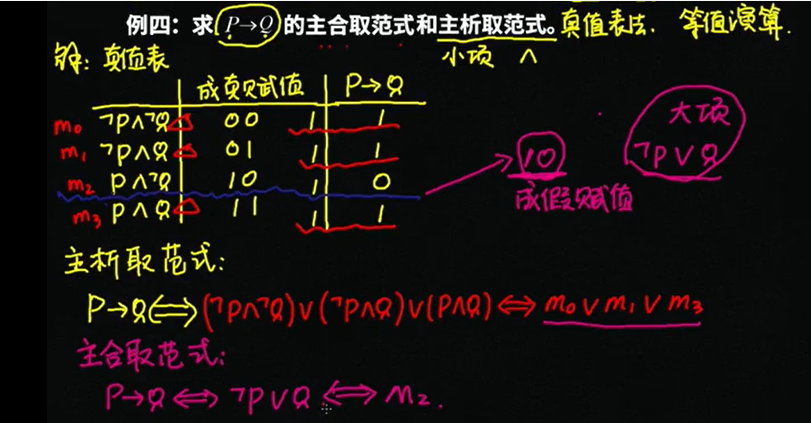 例四：求 P→Q 的主合取范式和主析取范式。真值表法. 等值演算.
解：真值表
小项 ∧
成真赋值 P→Q
m₀ ¬P∧¬Q 00 1 1
m₁ ¬P∧Q 01 1 1
m₂ P∧¬Q 10 1 0
m₃ P∧Q 11 1 1
10
成假赋值
大项
¬P∨Q
主析取范式：
P→Q⇔(¬P∧¬Q)∨(¬P∧Q)∨(P∧Q)⇔m₀∨m₁∨m₃
主合取范式：
P→Q⇔¬P∨Q⇔M₂.